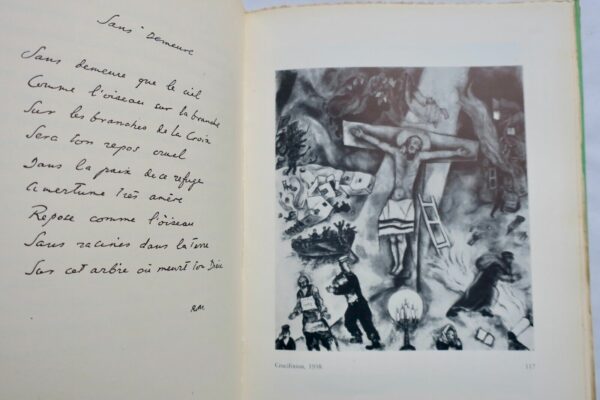 Sans Demeure
Sans demeure que le ciel
Comme l'oiseau sur la branche
Sur les branches de la Croix
Sera ton repos cruel
Dans la paix de ce refuge
Amertume très amère
Repose comme l'oiseau
Sans racines dans la terre
Sur cet arbre où meurt ton Dieu
R.M.
Crucifixion, 1938
117